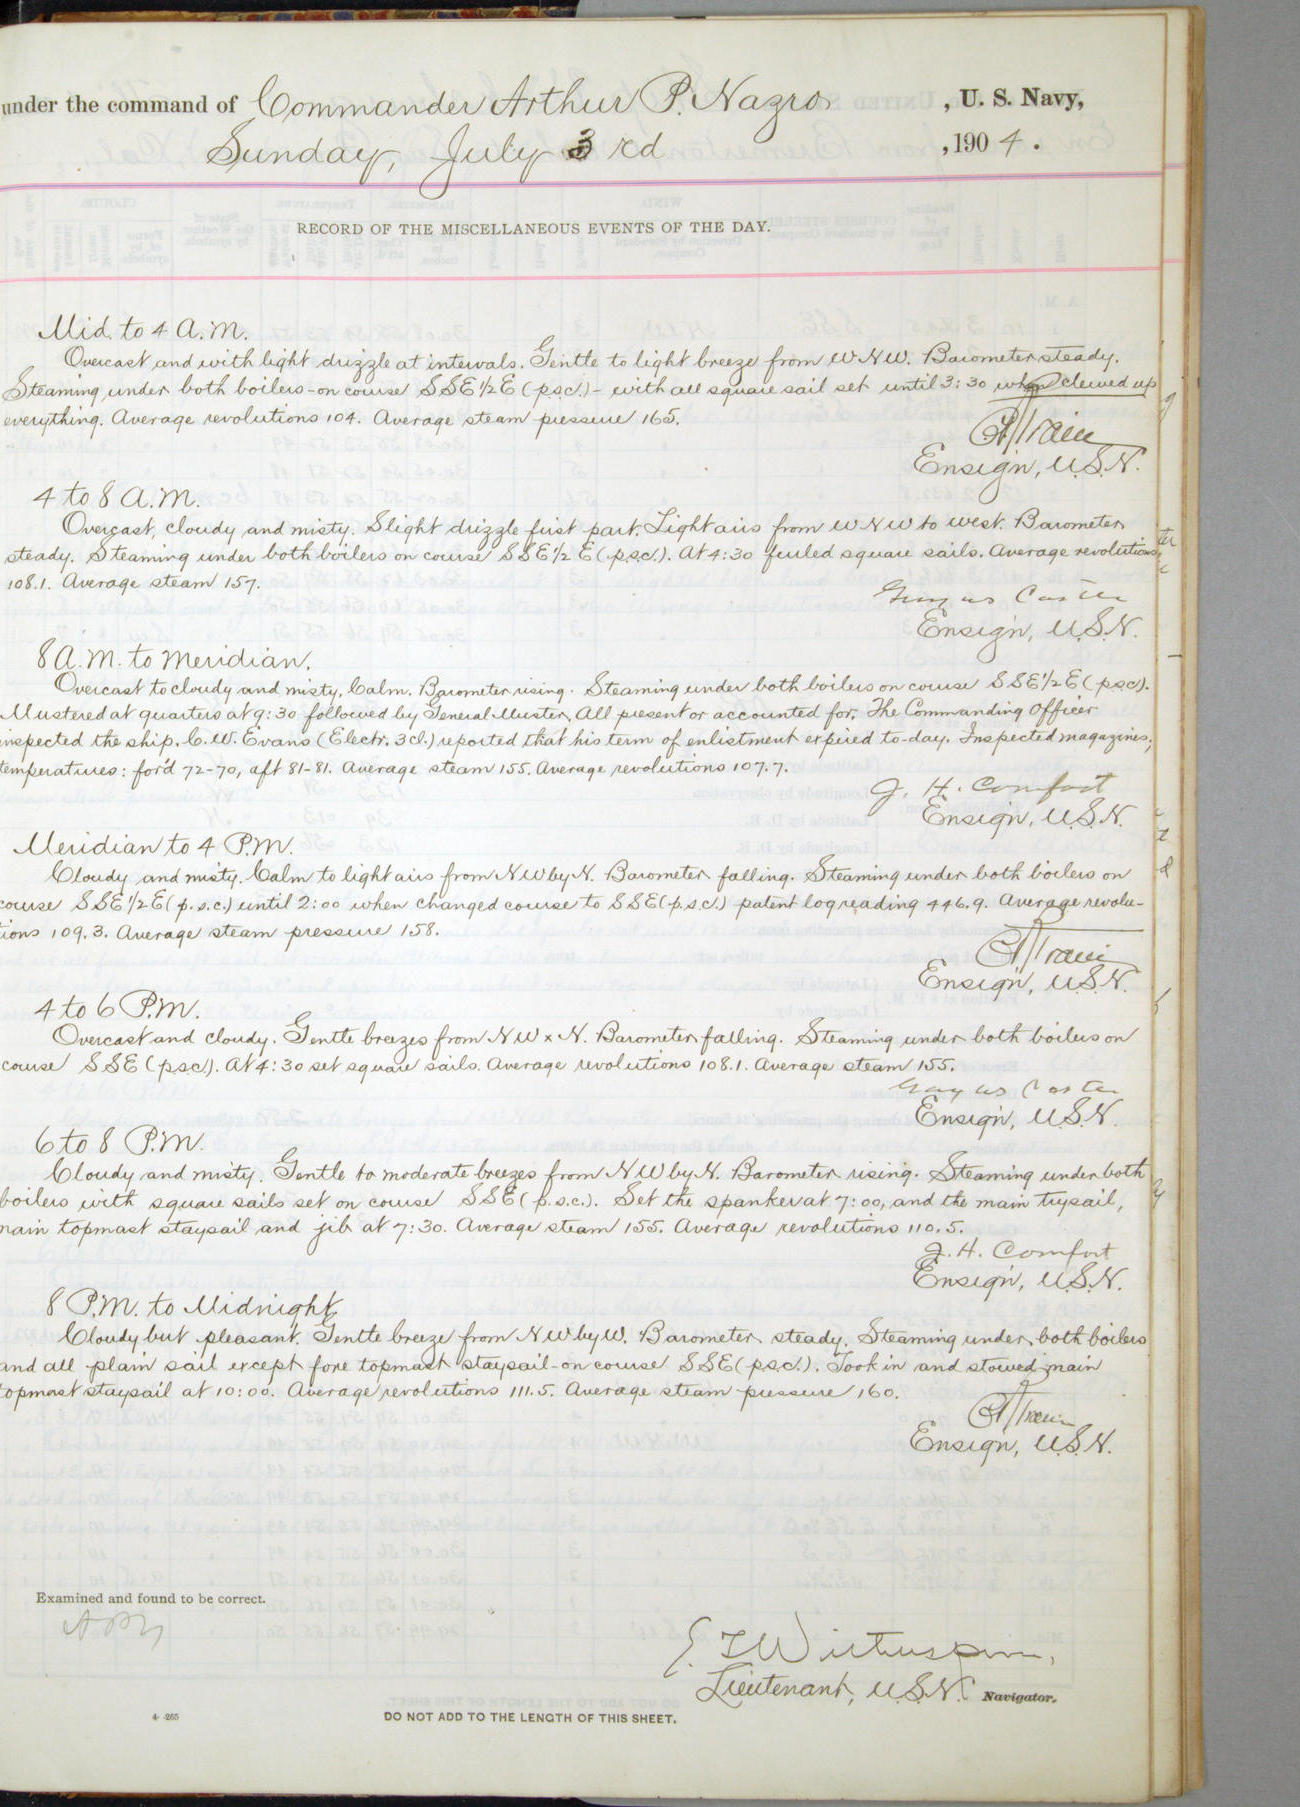 under the command of Commander Arthur P. Nazro, U. S. Navy,
Sunday, July 3rd, 1904.
RECORD OF THE MISCELLANEOUS EVENTS OF THE DAY.
Mid. to 4 A.M.
Overcast and with light drizzle at intervals. Gentle to light breeze from WNW. Barometer steady.
Steaming under both boilers-on course SSE½E (p.s.c.) - with all square sail set until 3:30 when clewed up
everything. Average revolutions 104. Average steam pressure 165.
Train
Ensign, U.S.N.
4 to 8 A.M.
Overcast, cloudy and misty. Slight drizzle first part. Light airs from WNW to West. Barometer
steady. Steaming under both boilers on course SSE½E (p.s.c.). At 4:30 furled square sails. Average revolutions
108.1. Average steam 157.
Ensign, U.S.N.
8 A.M. to Meridian.
Overcast to cloudy and misty. Calm. Barometer rising. Steaming under both boilers on course SSE½E (p.s.c.).
Mustered at quarters at 9:30 followed by General Muster, All present or accounted for. The Commanding Officer
inspected the ship. C. W. Evans (Electr. 3cl.) reported that his term of enlistment expired to-day. Inspected magazines;
temperatures: for'd 72-70, aft 81-81. Average steam 155. Average revolutions 107.7.
J. H. Comfort
Ensign, U.S.N.
Meridian to 4 P.M.
Cloudy and misty. Calm to light airs from NW by N. Barometer falling. Steaming under both boilers on
course SSE½E (p.s.c.) until 2:00 when changed course to SSE (p.s.c.) patent log reading 446.9. Average revolu-
tions 109.3. Average steam pressure 158.
Train
Ensign, U.S.N.
4 to 6 P.M.
Overcast and cloudy. Gentle breezes from NW x N. Barometer falling. Steaming under both boilers on
course SSE (p.s.c.). At 4:30 set square sails. Average revolutions 108.1. Average steam 155.
Ensign, U.S.N.
6 to 8 P.M.
Cloudy and misty. Gentle to moderate breezes from NW by N. Barometer rising. Steaming under both
boilers with square sails set on course SSE (p.s.c.). Set the spanker at 7:00, and the main trysail,
main topmast staysail and jib at 7:30. Average steam 155. Average revolutions 110.5.
J. H. Comfort
Ensign, U.S.N.
8 P.M. to Midnight.
Cloudy but pleasant. Gentle breeze from NW by W. Barometer steady. Steaming under both boilers
and all plain sail except fore topmast staysail-on course SSE (p.s.c.). Took in and stowed main
topmast staysail at 10:00. Average revolutions 111.5. Average steam pressure 160.
Train
Ensign, U.S.N.
Examined and found to be correct.
Lieutenant, U.S.N. Navigator.
4-265
DO NOT ADD TO THE LENGTH OF THIS SHEET.